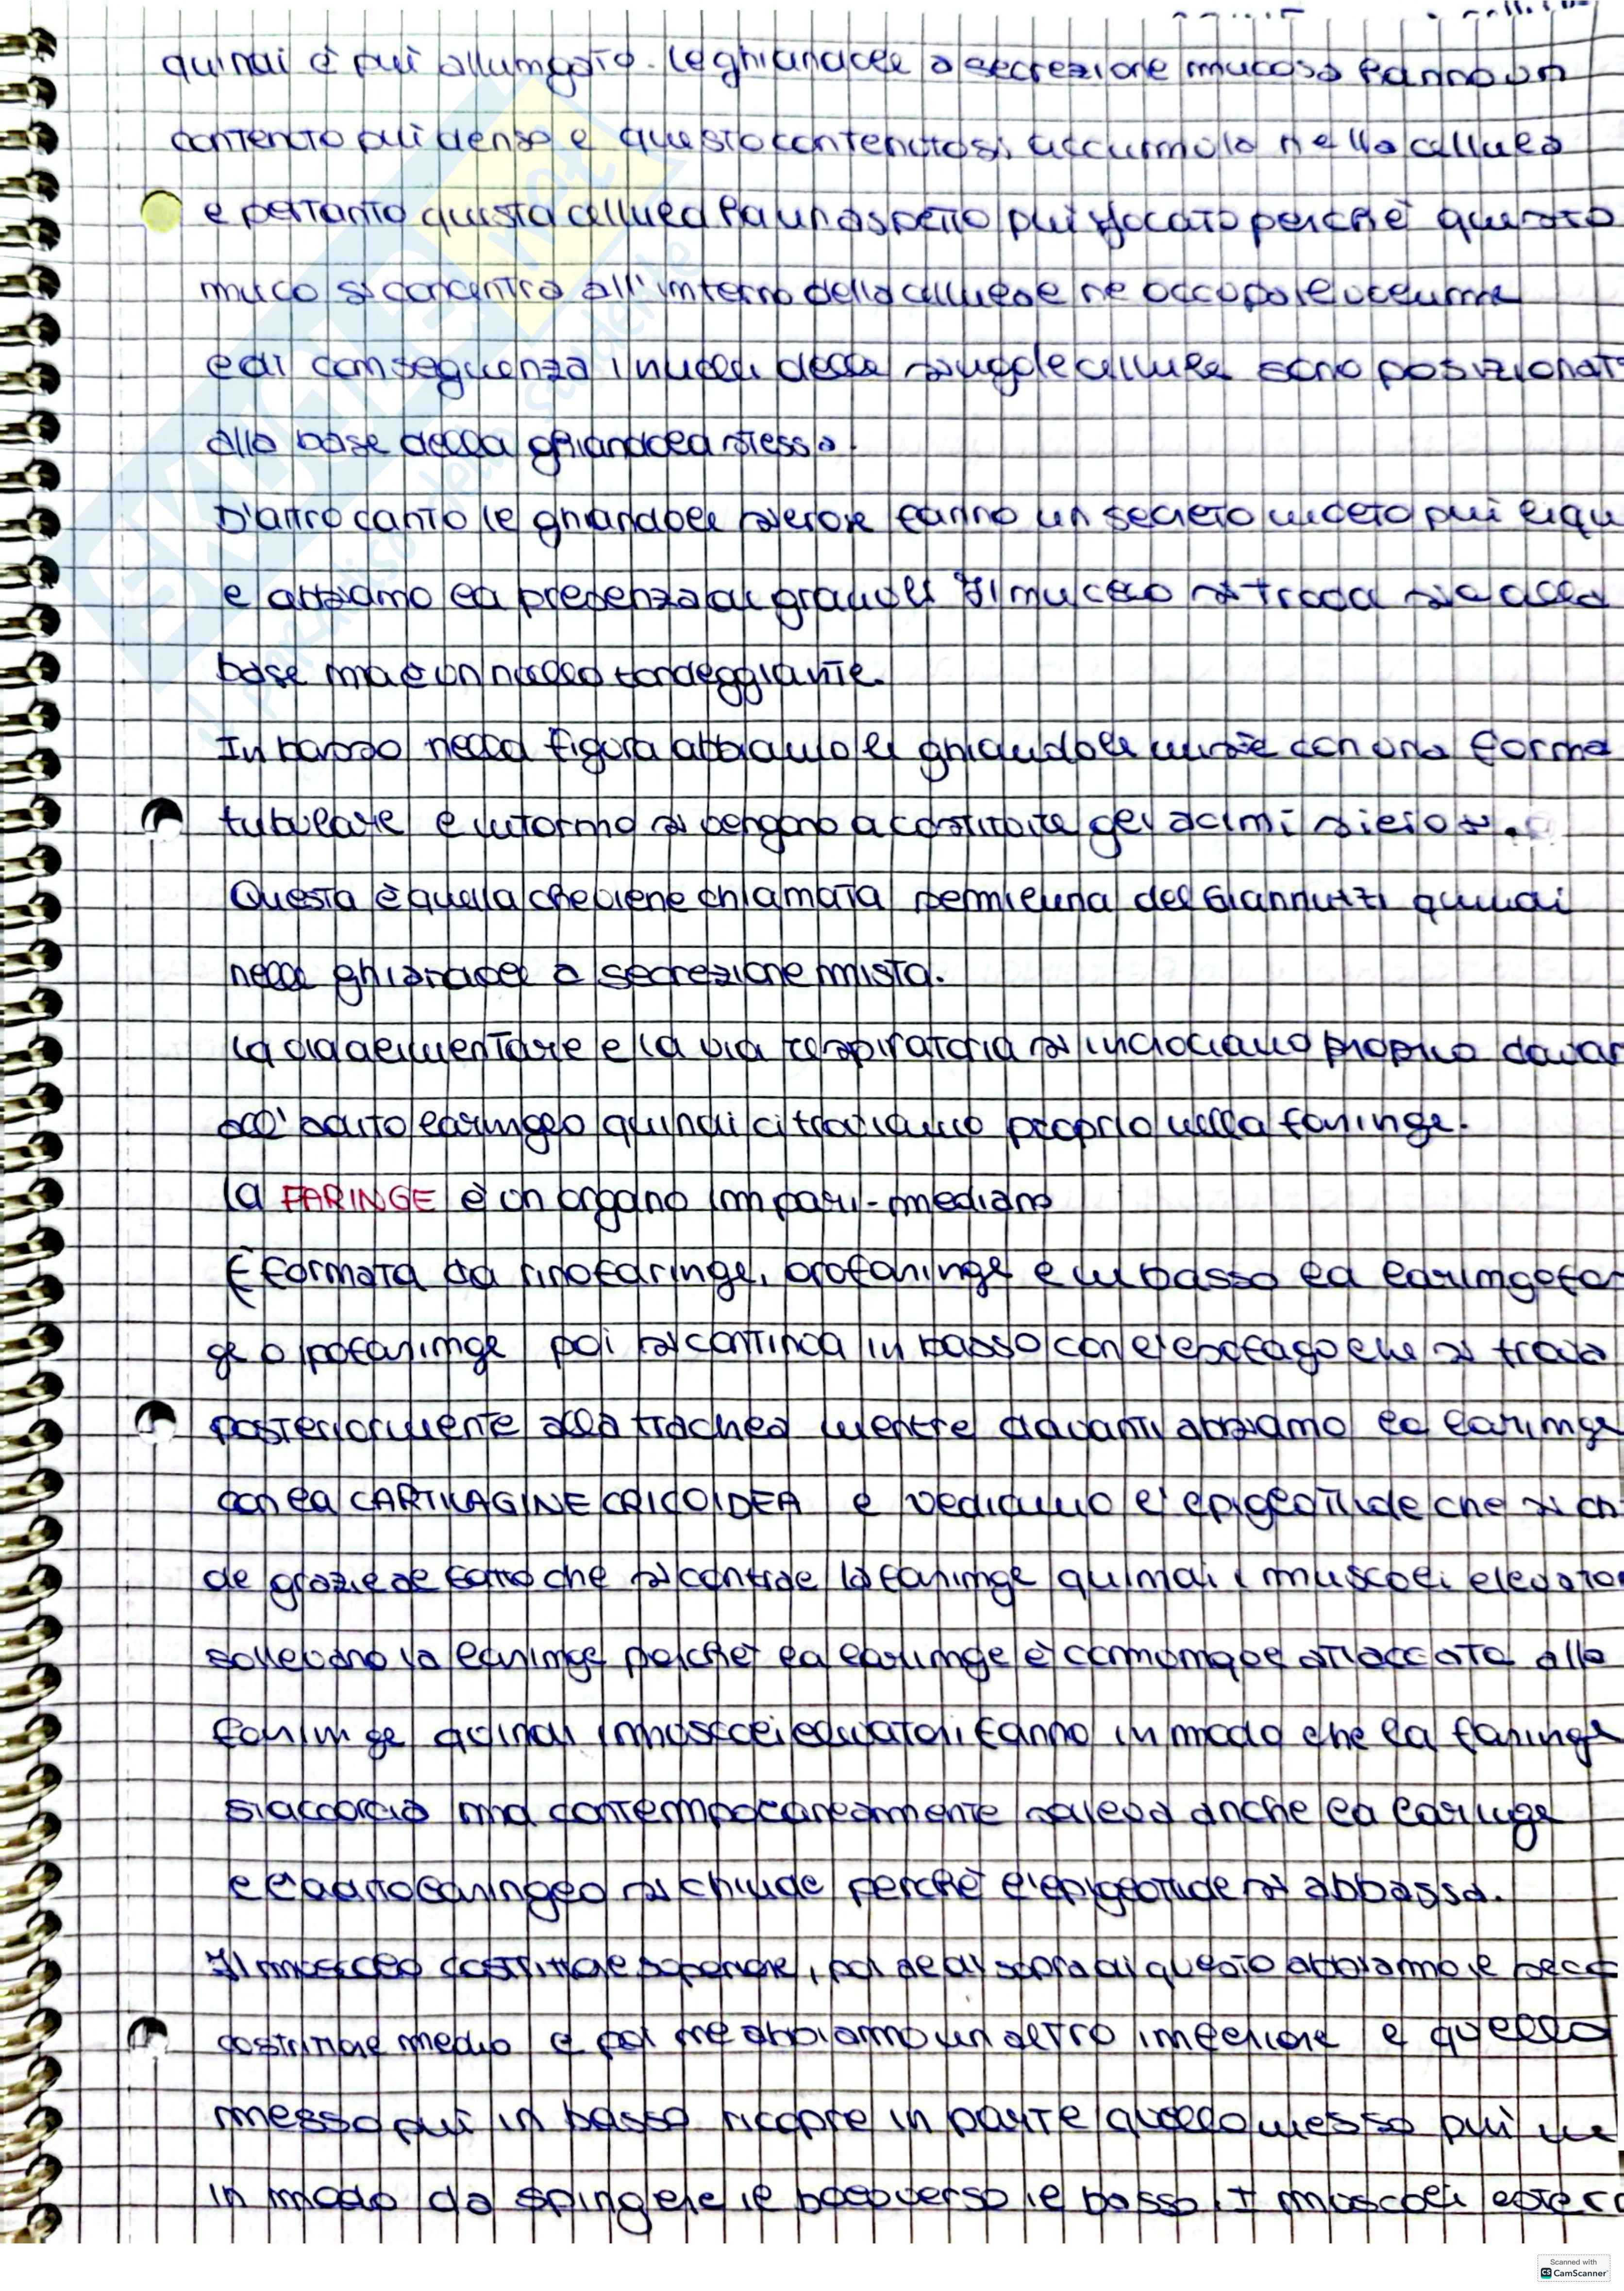 quindi è più allungato. le ghiandole a secrezione mucosa hanno un
contenuto più denso e questo contenuto si accumula nella cellula
e pertanto questa cellula ha un aspetto più sfocato perchè questo
muco si concentra all'interno della cellula e ne occupa il volume
e di conseguenza i nuclei delle singole cellule sono posizionat
alla base della ghiandola stessa.
D'altro canto le ghiandole sierose fanno un secreto molto più liqu
e abbiamo la presenza di granuli Il nucleo si trova sia alla
base ma è un nucleo tondeggiante.
In basso nella figura abbiamo le ghiandole miste con una forma
tubulare e intorno si vengono a costituire gli acini sierosi.
Questa è quella che viene chiamata semiluna del Giannuzzi quindi
nelle ghiandole a secrezione mista.
la via alimentare e la via respiratoria si incrociano proprio davan
all'adito laringeo quindi ci troviamo proprio nella faringe.
la FARINGE è un organo impari-mediano
È formata da rinofaringe, orofaringe e in basso la laringofar
ge o ipofaringe poi si continua in basso con l'esofago che si trova
posteriormente alla trachea mentre davanti abbiamo la laringe
con la CARTILAGINE CRICOIDEA e vediamo l'epiglottide che si ch
de grazie al fatto che si contrae la faringe quindi i muscoli elevator
sollevano la laringe perchè la laringe è comunque attaccata alla
faringe quindi i muscoli elevatori fanno in modo che la faringe
si accorcia ma contemporaneamente solleva anche la laringe
e l'adito laringeo si chiude perchè l'epiglottide si abbassa.
Il muscolo costrittore superiore, poi al di sopra di questo abbiamo il
costrittore medio e poi ne abbiamo un altro inferiore e quello
messo più in basso ricopre in parte quello messo più
in modo da spingere il bolo verso il basso. I muscoli
SKUOLA.net
il paradiso dello studente
Scanned with
CS CamScanner